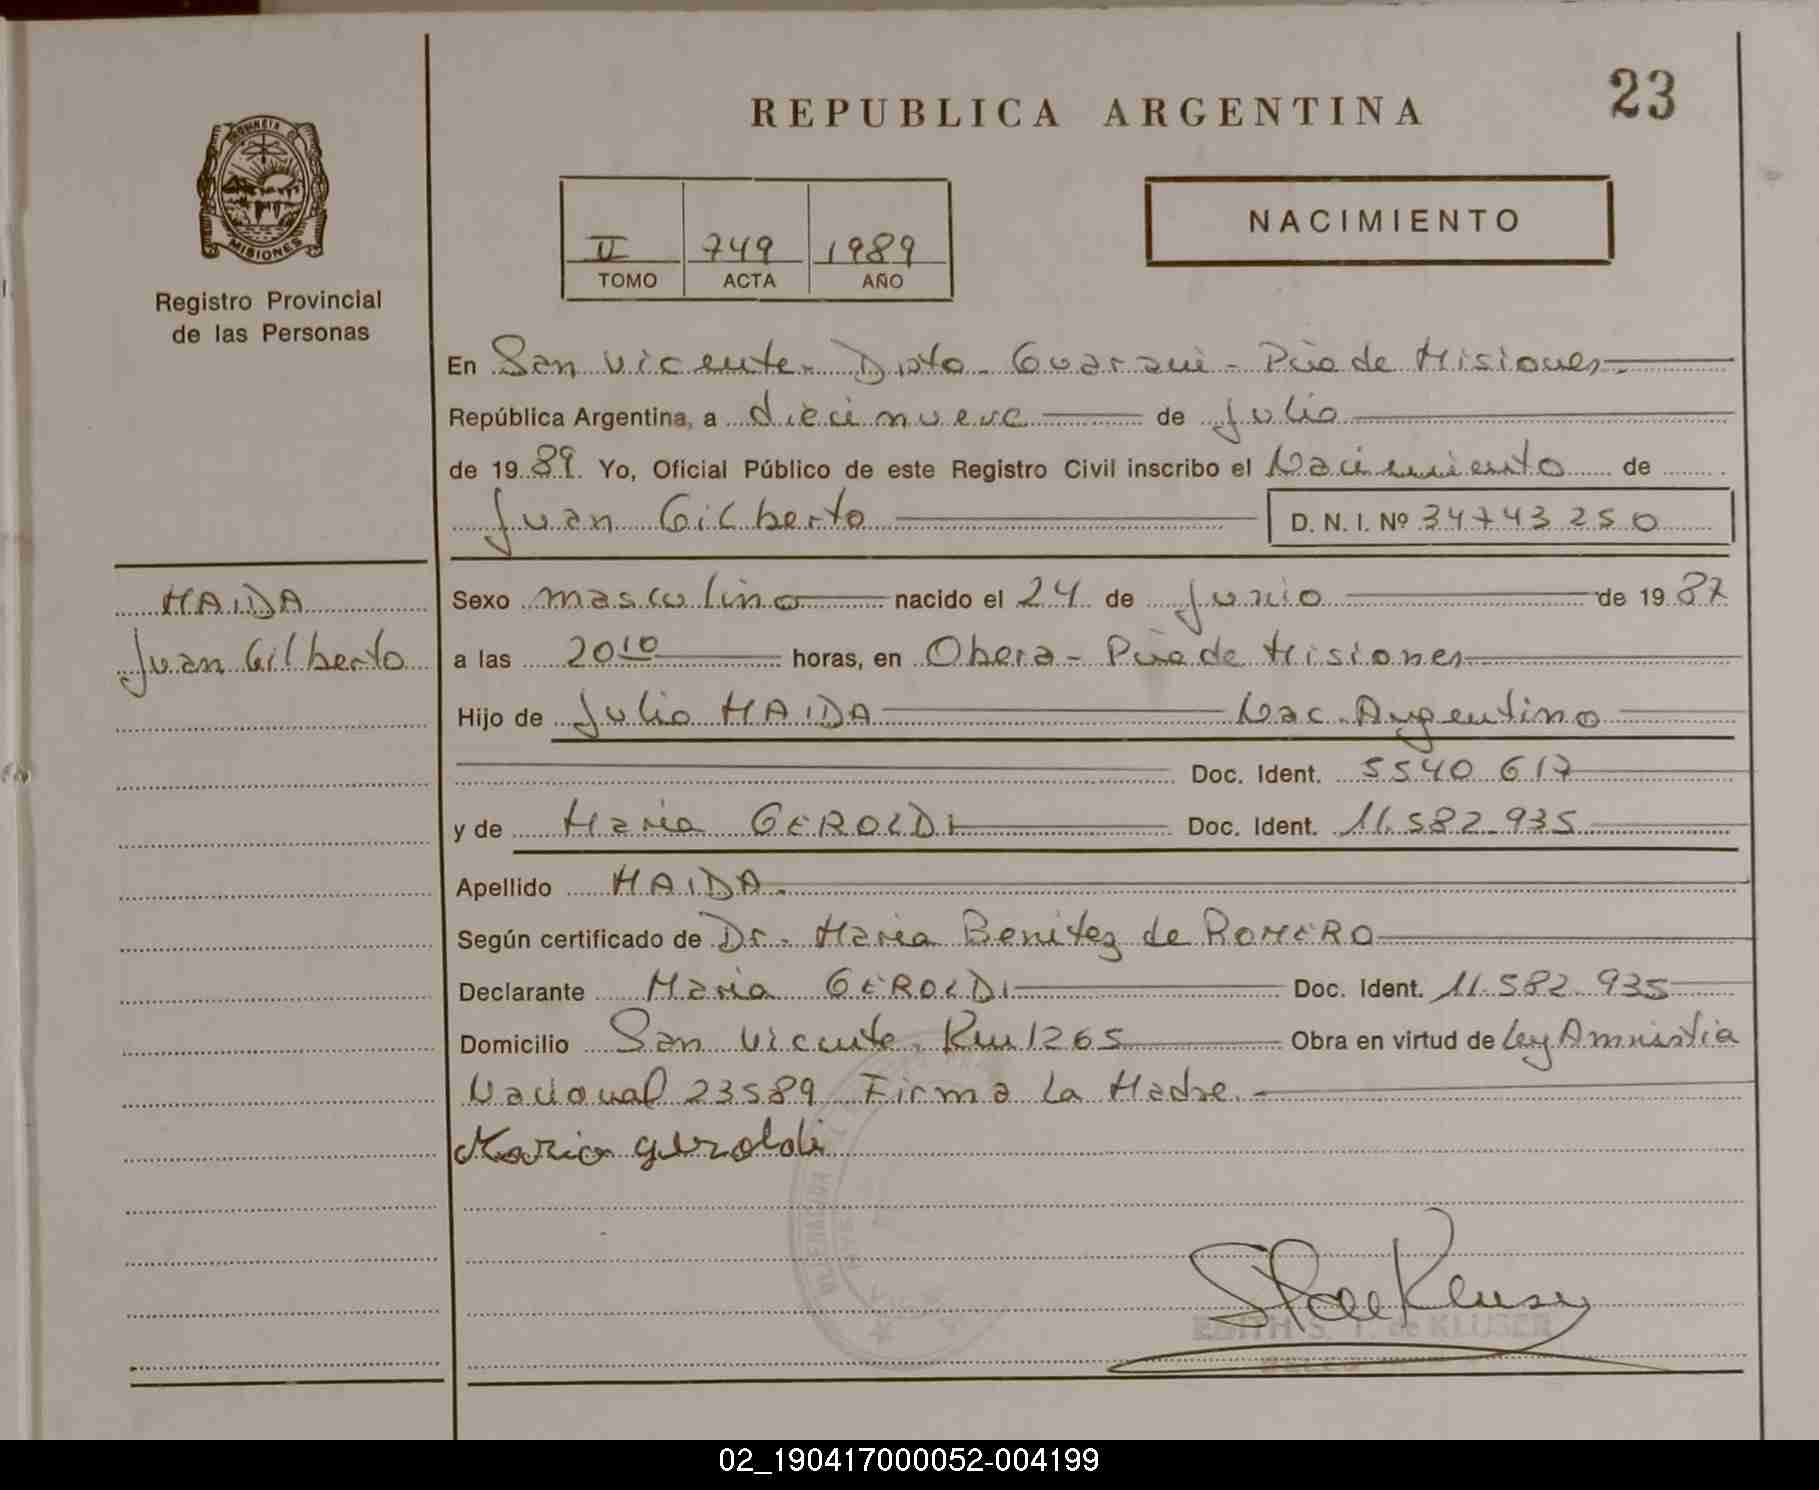 REPUBLICA ARGENTINA
23
PROVINCIA DE
MISIONES
Registro Provincial
de las Personas
II 749 1989
TOMO ACTA AÑO
NACIMIENTO
En San Vicente - Dpto. Guaraní - Pcia de Misiones
República Argentina, a diecinueve de Julio
de 1989. Yo, Oficial Público de este Registro Civil inscribo el Nacimiento de
Juan Gilberto D. N. I. Nº 34743250
HAIDA
Juan Gilberto
Sexo masculino nacido el 24 de Junio de 1987
a las 20 10 horas, en Obera - Pcia de Misiones
Hijo de Julio HAIDA Nac. Argentino
Doc. Ident. 5540617
y de Maria GEROLDI Doc. Ident. 11.582.935
Apellido HAIDA.
Según certificado de Dr. Maria Benitez de ROMERO
Declarante Maria GEROLDI Doc. Ident. 11.582.935
Domicilio San Vicente. Km 1265 Obra en virtud de Ley Amnistia
Nacional 23589 Firma La Madre.
Maria geroldi
EDITH S. T. de KLUSER
02_190417000052-004199